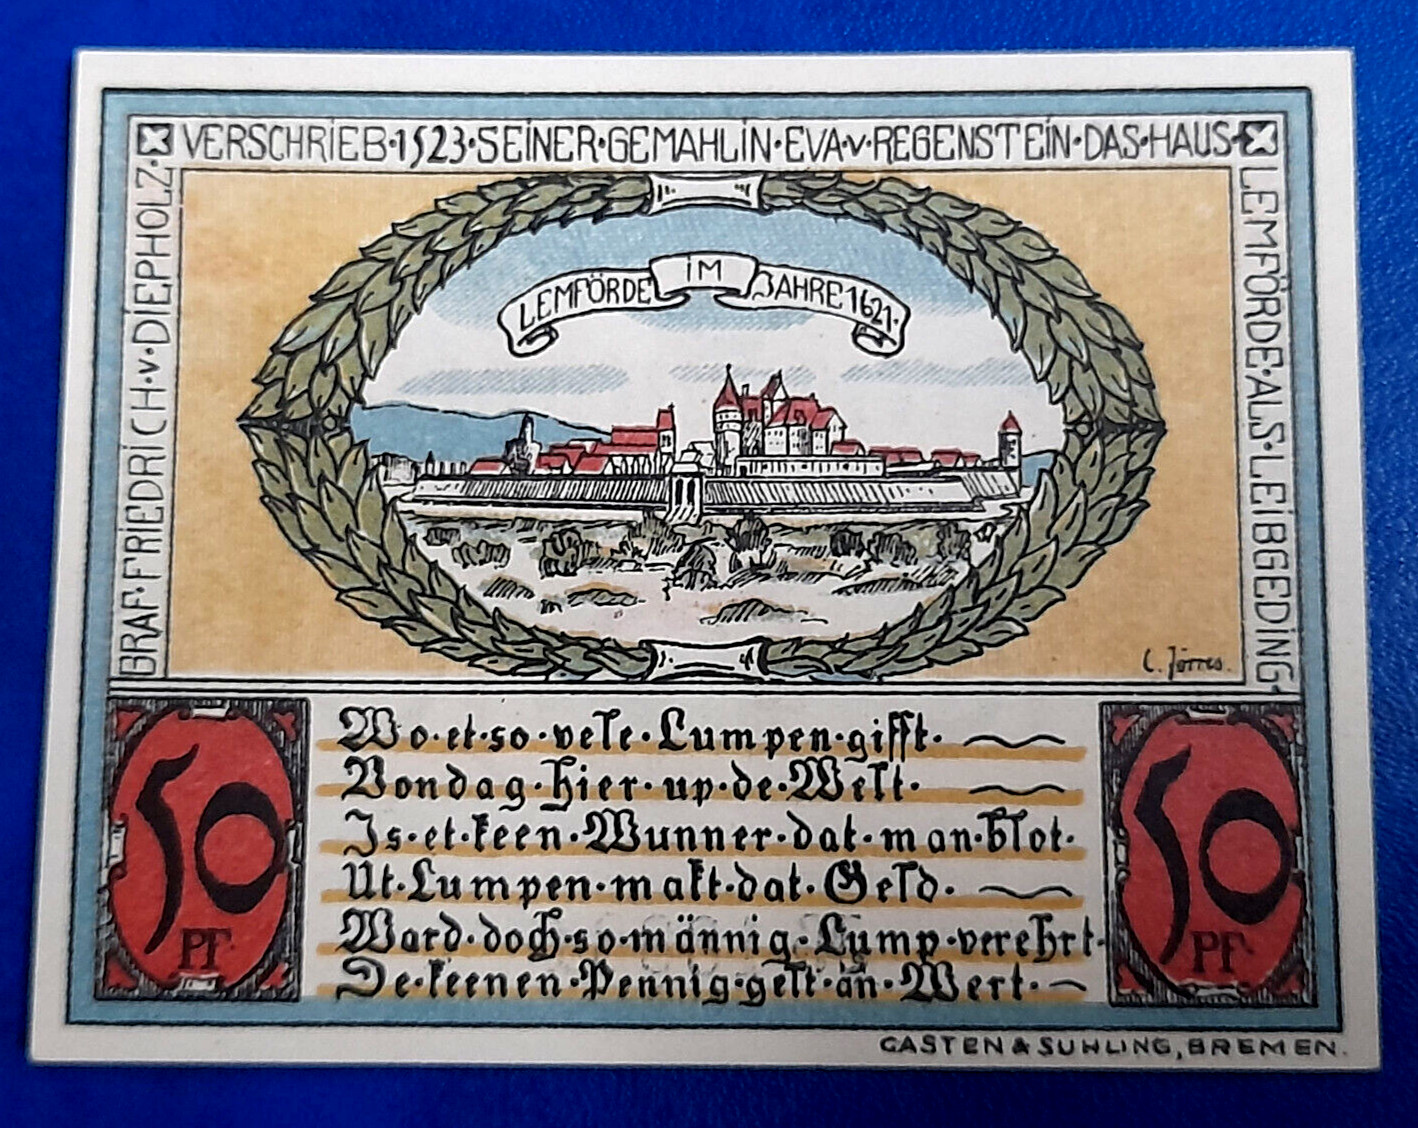 GRAF·FRIEDRICH·v·DIEPHOLZ·
VERSCHRIEB·1523·SEINER·GEMAHLIN·EVA·v·REGENSTEIN·DAS·HAUS·
LEMFÖRDE·ALS·LEIBGEDING·
LEMFÖRDE IM JAHRE 1621·
C. Jörres.
50 PF·
Wo·et·so·vele·Lumpen·gifft·
Vondag·hier·up·de·Welt·
Is·et·keen·Wunner·dat·man·blot·
Ut·Lumpen·makt·dat·Geld·
Ward·doch·so·männig·Lump·verehrt·
De·keenen·Pennig·gelt·an·Wert·
50 PF·
CASTEN & SUHLING, BREMEN.